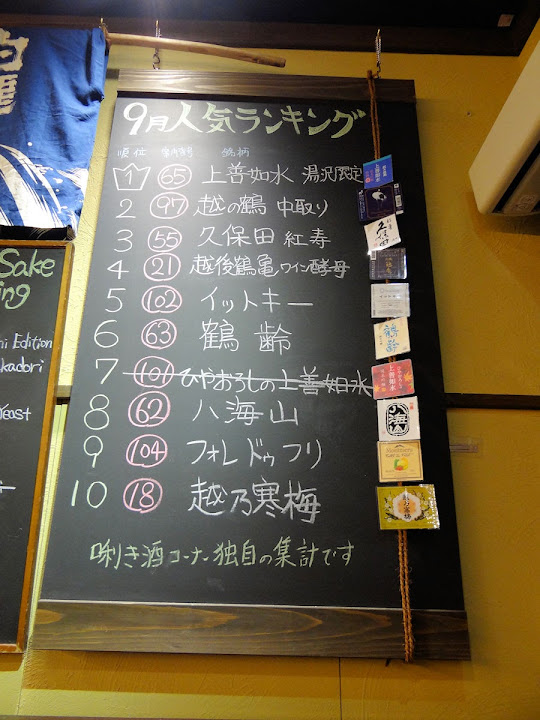 9月人気ランキング
順位 番号 銘柄
1 65 上善如水 湯沢限定
2 97 越の鶴 中取り
3 55 久保田 紅寿
4 21 越後鶴亀 ワイン酵母
5 102 イットキー
6 63 鶴齢
7 101 ひやおろしの上善如水
8 62 八海山
9 104 フォレ ドゥ フリ
10 18 越乃寒梅
唎き酒コーナー独自の集計です
Sake
ing
Edition
kadori
east
上善如水
久保田
鶴齢
上善如水
八海山